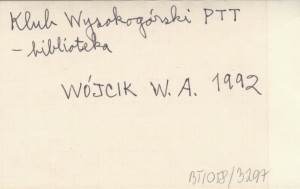 Klub Wysokogórski PTT
- biblioteka
WÓJCIK W. A. 1992
BT/058/3297